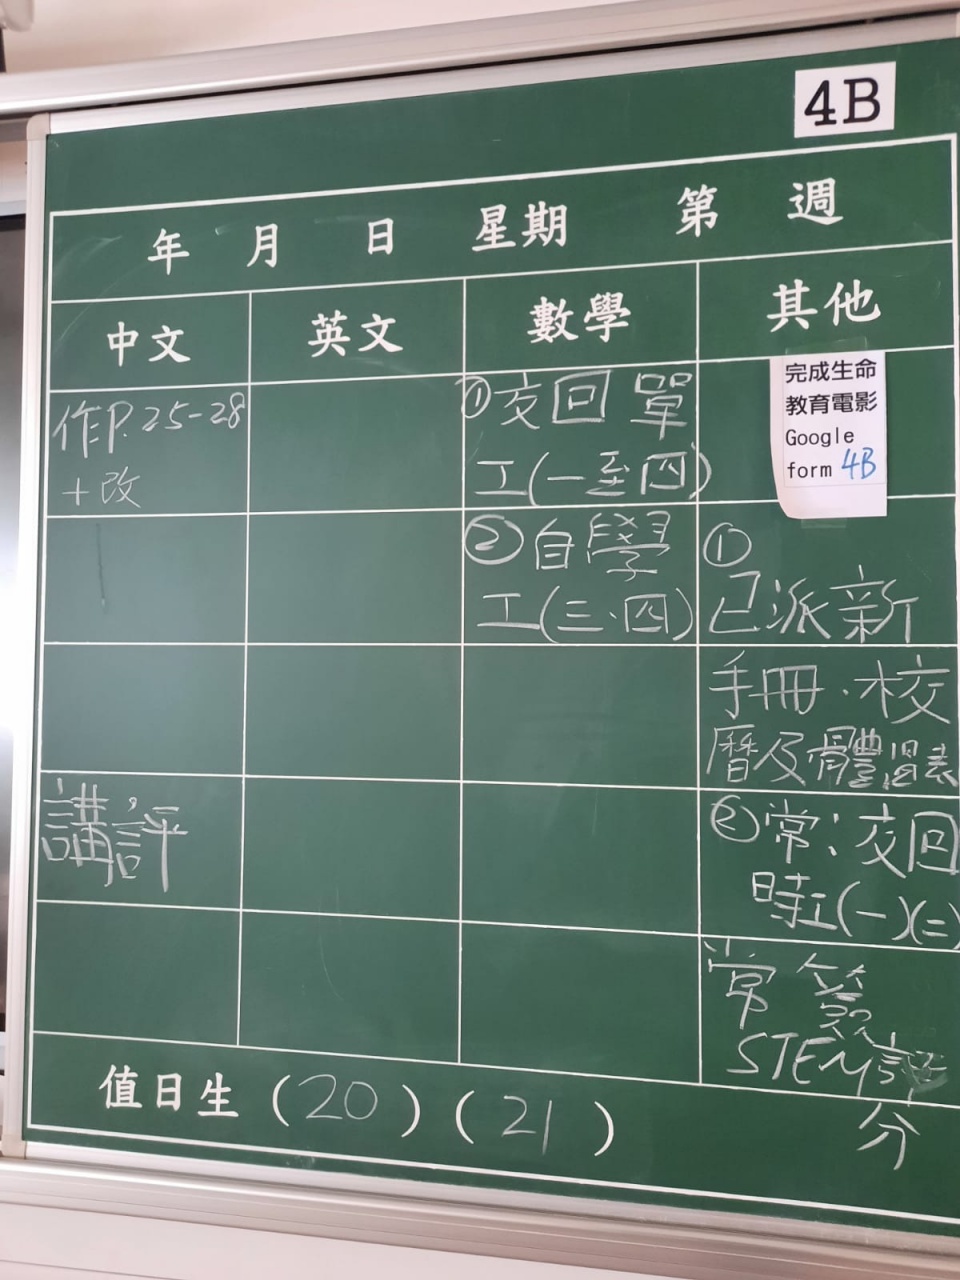 4B
年 月 日 星期 第 週
中文 英文 數學 其他
作P.25-28
+改
講評
①交回單
工(一至四)
②自學
工(三、四)
完成生命
教育電影
Google
form 4B
①
已派新
手冊、校
曆及體溫表
②常:交回
時工(一)(二)
常 簽
STEM評
分
值日生 (20) (21)